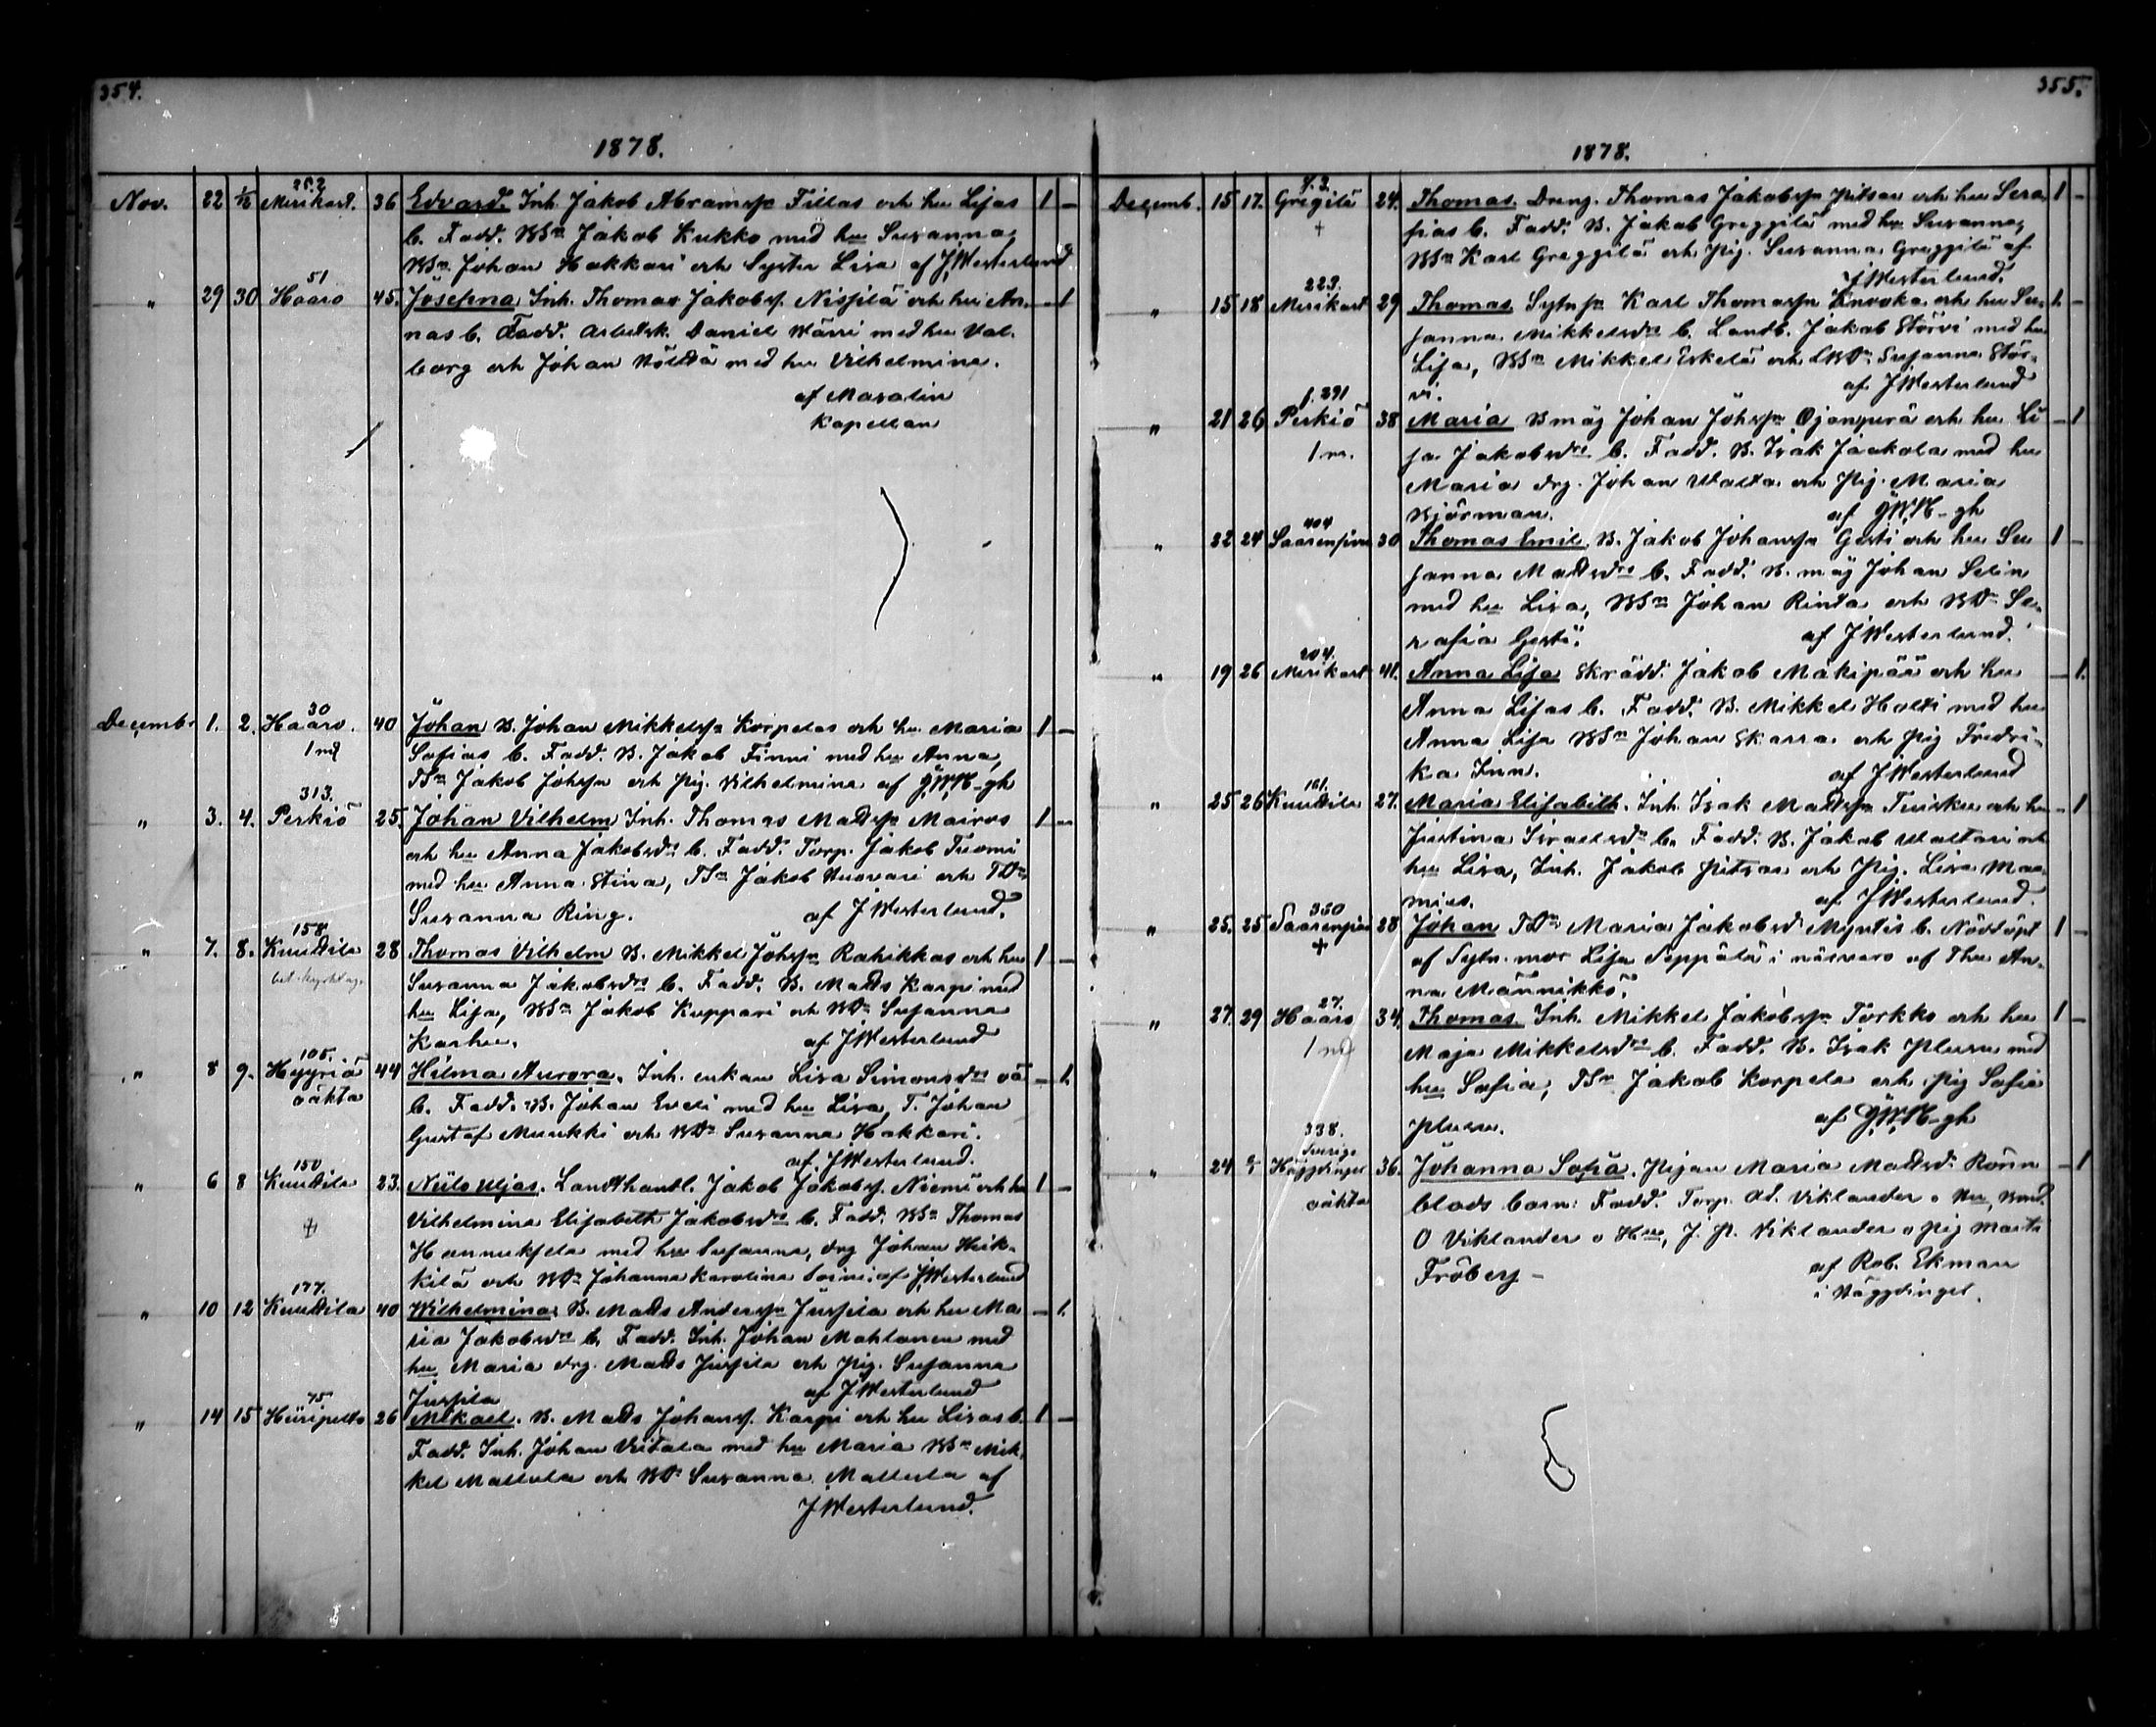 354.
1878.
25.2
Nov. 22 1/12 Merikart. 36 Edvard. Inh. Jakob Abramsso Fillas och hu Lisas 1 —
b. Fadd. BSn Jakob Kukko med hu Susanna,
BSn Johan Hakkari och Syster Lisa af J Westerlund
51
" 29 30 Haaro 45. Josefina Inh. Thomas Jakobsso. och hu An- — 1
nas b. Fadd. Arbetsk. Daniel Wärri med hu Val-
borg och Johan med hu Vilhelmina.
af Masalin
Kapellan
30
Decemb. 1. 2. Haaro. 40 Johan B. Johan Mikkelsso Korpelas och hu Maria 1 —
1 md Sofias b. Fadd. B. Jakob Finni med hu Anna,
TSn Jakob Johsso och Pig. Vilhelmina af
313.
" 3. 4. Perkiö 25. Johan Vilhelm Inh. Thomas Madsso Mairos 1 —
och hu Anna Jakobsdrs b. Fadd. Torp. Jakob Tuomi
med hu Anna Stina, TSn Jakob Vuovari och TDr
Susanna Ring. af J Westerlund.
158.
" 7. 8. Knuutila 28 Thomas Vilhelm B. Mikkel Johsso Rahikkas och hu 1 —
Susanna Jakobsdrs b. Fadd. B. Mads Karpi med
hu Lisa, BSn Jakob Kuppari och BDr Susanna
Karhu. af J Westerlund
105.
" 8 9. Hyyriä 44 Hilma Aurora. Inh. enkan Lisa Simonsdrs oä — 1.
oäkta b. Fadd. B. Johan Eveli med hu Lisa, T. Johan
Gustaf Munkki och BDr Susanna Hakkari.
af J Westerlund.
150
" 6 8 Knuutila 23. Niilo Uljas. Landthandl. Jakob Jakobsso. Niemi och hu 1 —
+ Vilhelmina Elisabeth Jakobsdrs b. Fadd. BSn Thomas
Hannuksela med hu Susanna, drg Johan Heik-
kilä och BDr Johanna Karolina Soini. af J Westerlund
177.
" 10 12 Knuutila 40 Wilhelmina B. Mads Andersso Jussila och hu Ma — 1.
ria Jakobsdrs b. Fadd. Inh. Johan Mahlanen med
hu Maria drg. Mads Jussila och Pig. Susanna
Jussila af J Westerlund
75
" 14 15 Hiiripelto 26 Mikael. B. Mads Johansso. Karpi och hu Lisas b. 1 —
Fadd. Inh. Johan Viitala med hu Maria BSn Mik-
kel Mattila och BDr Susanna Mattila af
J Westerlund.
355.
1878.
Decemb. 15 17. Gregilä 24. Thomas. Dreng. Thomas Jakobsso Pitsar och hu Sera- 1 —
+ fias b. Fadd. B. Jakob Greggilä med hu Susanna,
BSn Karl Greggilä och Pig. Susanna Greggilä af
J Westerlund.
223.
" 15 18 Merikart 29 Thomas Sytn. Karl Thomasso Knooka och hu Su- 1. —
sanna Mikkelsdrs b. Landb. Jakob Störvi med hu
Lisa, BSn Mikkel Eskelä och LBDr Susanna Stör-
vi. af J Westerlund
1.291
" 21 26 Perkiö 38 Maria B måg Johan Johsso Ojanperä och hu Li — 1
1 m. sa Jakobsdrs b. Fadd. B. Isak Jaakola med hu
Maria drg. Johan Walta och Pig. Maria
Björman. af
404
" 22 24 Saarenpää 30 Thomas Emil. B. Jakob Johansso Gästi och hu Su 1 —
sanna Madsdrs b. Fadd. B. måg Johan Selin
med hu Lisa, BSn Johan Rinta och BDr Se-
rafia Gästi. af J Westerlund.
204.
" 19 26 Merikart 41. Anna Lisa Skrädd. Jakob Mäkipää och hu — 1.
Anna Lisas b. Fadd. B. Mikkel Holti med hu
Anna Lisa BSn Johan Skarra och Pig Fredri-
ka Inn. af J Westerlund
161.
" 25 26 Knuutila 27. Maria Elisabeth. Inh. Isak Madsso Tuisku och hu — 1
Justina Israelsdrs b. Fadd. B. Jakob Waltari och
hu Lisa, Inh. Jakob Pitsar och Pig. Lisa Maa-
nies. af J Westerlund.
350
" 25. 25 Saarenpää 28 Johan TDr Maria Jakobsd Myntis b. Nöddöpt 1 —
+ af Sytn. mor Lisa Seppälä i närvaro af Thu An-
na Männikkö.
27.
" 27. 29 Haaro 34 Thomas Inh. Mikkel Jakobsso Torkko och hu 1 —
1 md Maja Mikkelsdrs b. Fadd. B. Isak Plusu med
hu Sofia, TSn Jakob Korpela och Pig Sofia
Plusu. af
338.
Sverige
" 24 Häggdinget 36. Johanna Sofia. Pigan Maria Madsd. Rönn — 1
oäkta blads barn: Fadd. Torp. Ad. Viklander o Hu, Bond.
O Viklander o Hu, J. P. Viklander o Pig Marta
Fröberg — af Rob. Ekman
i Häggdinget.